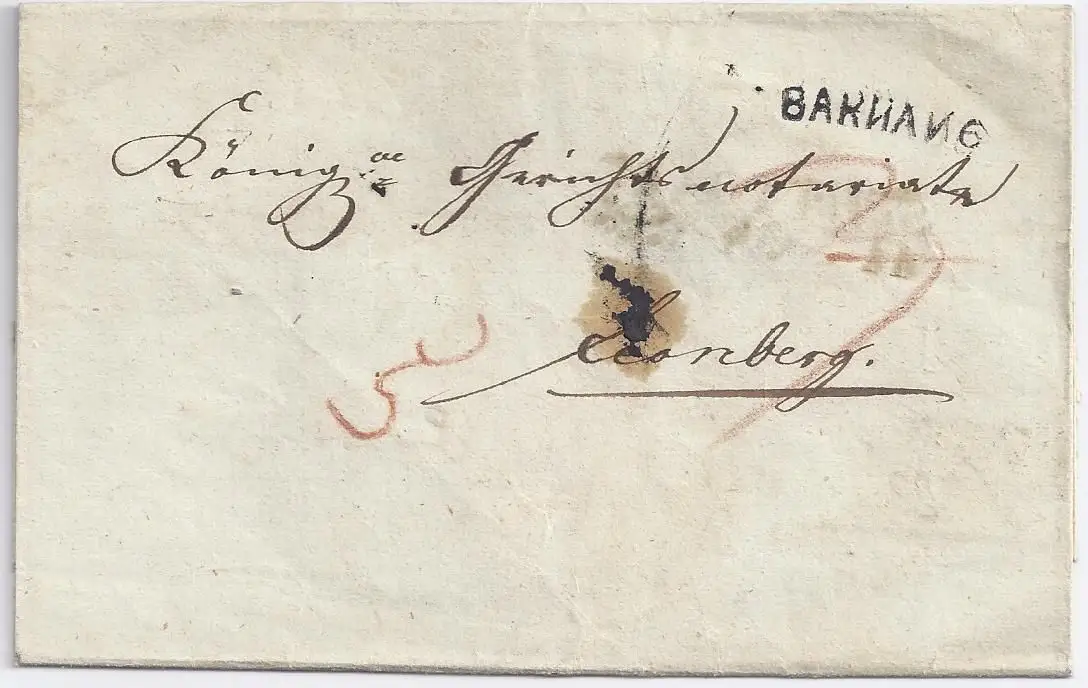 BAKNANG
Königl. Gerichtsnotariate
Leonberg.